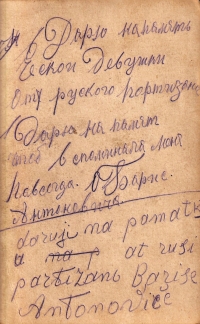 Дарю на память
Ческой Девушки
От руского партизана
Дарю на памят
чтоб вспоминала меня
навсегда. Борис.
Антонович
daruji na památku
a na at rusi
partizans Barise
Antonoviče